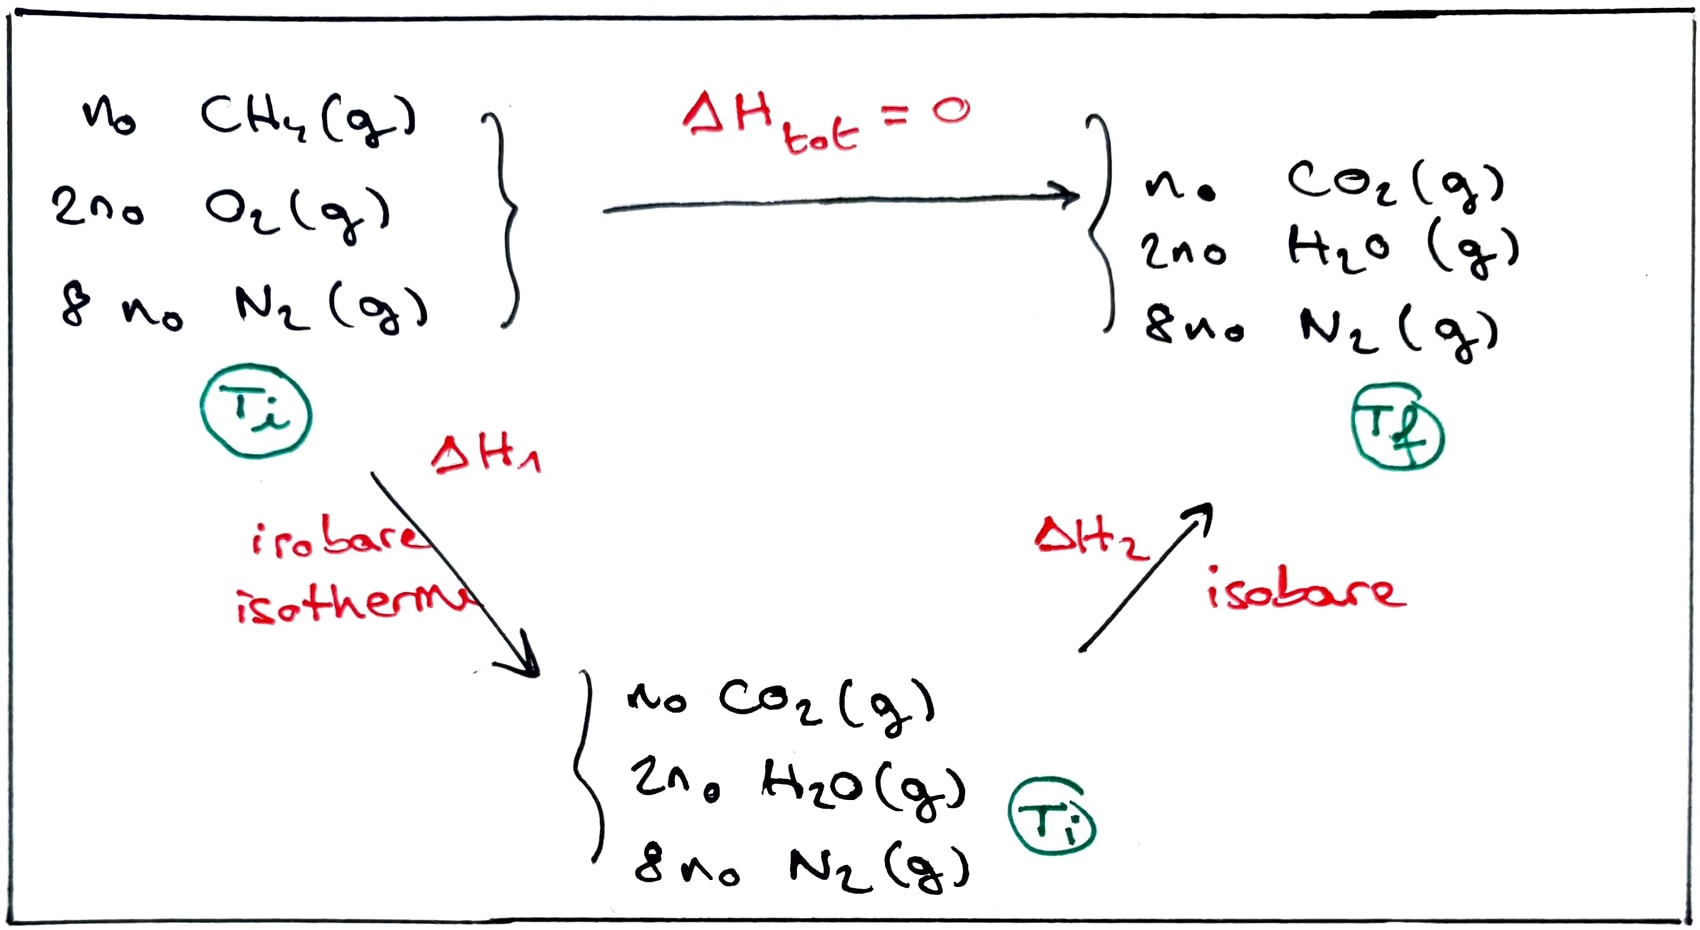 n₀ CH₄(g)
2n₀ O₂(g)
8 n₀ N₂(g)
Ti
ΔH_tot = 0
n₀ CO₂(g)
2n₀ H₂O (g)
8n₀ N₂(g)
Tf
ΔH₁
isobare
isotherme
ΔH₂
isobare
n₀ CO₂(g)
2n₀ H₂O(g)
8n₀ N₂(g)
Ti